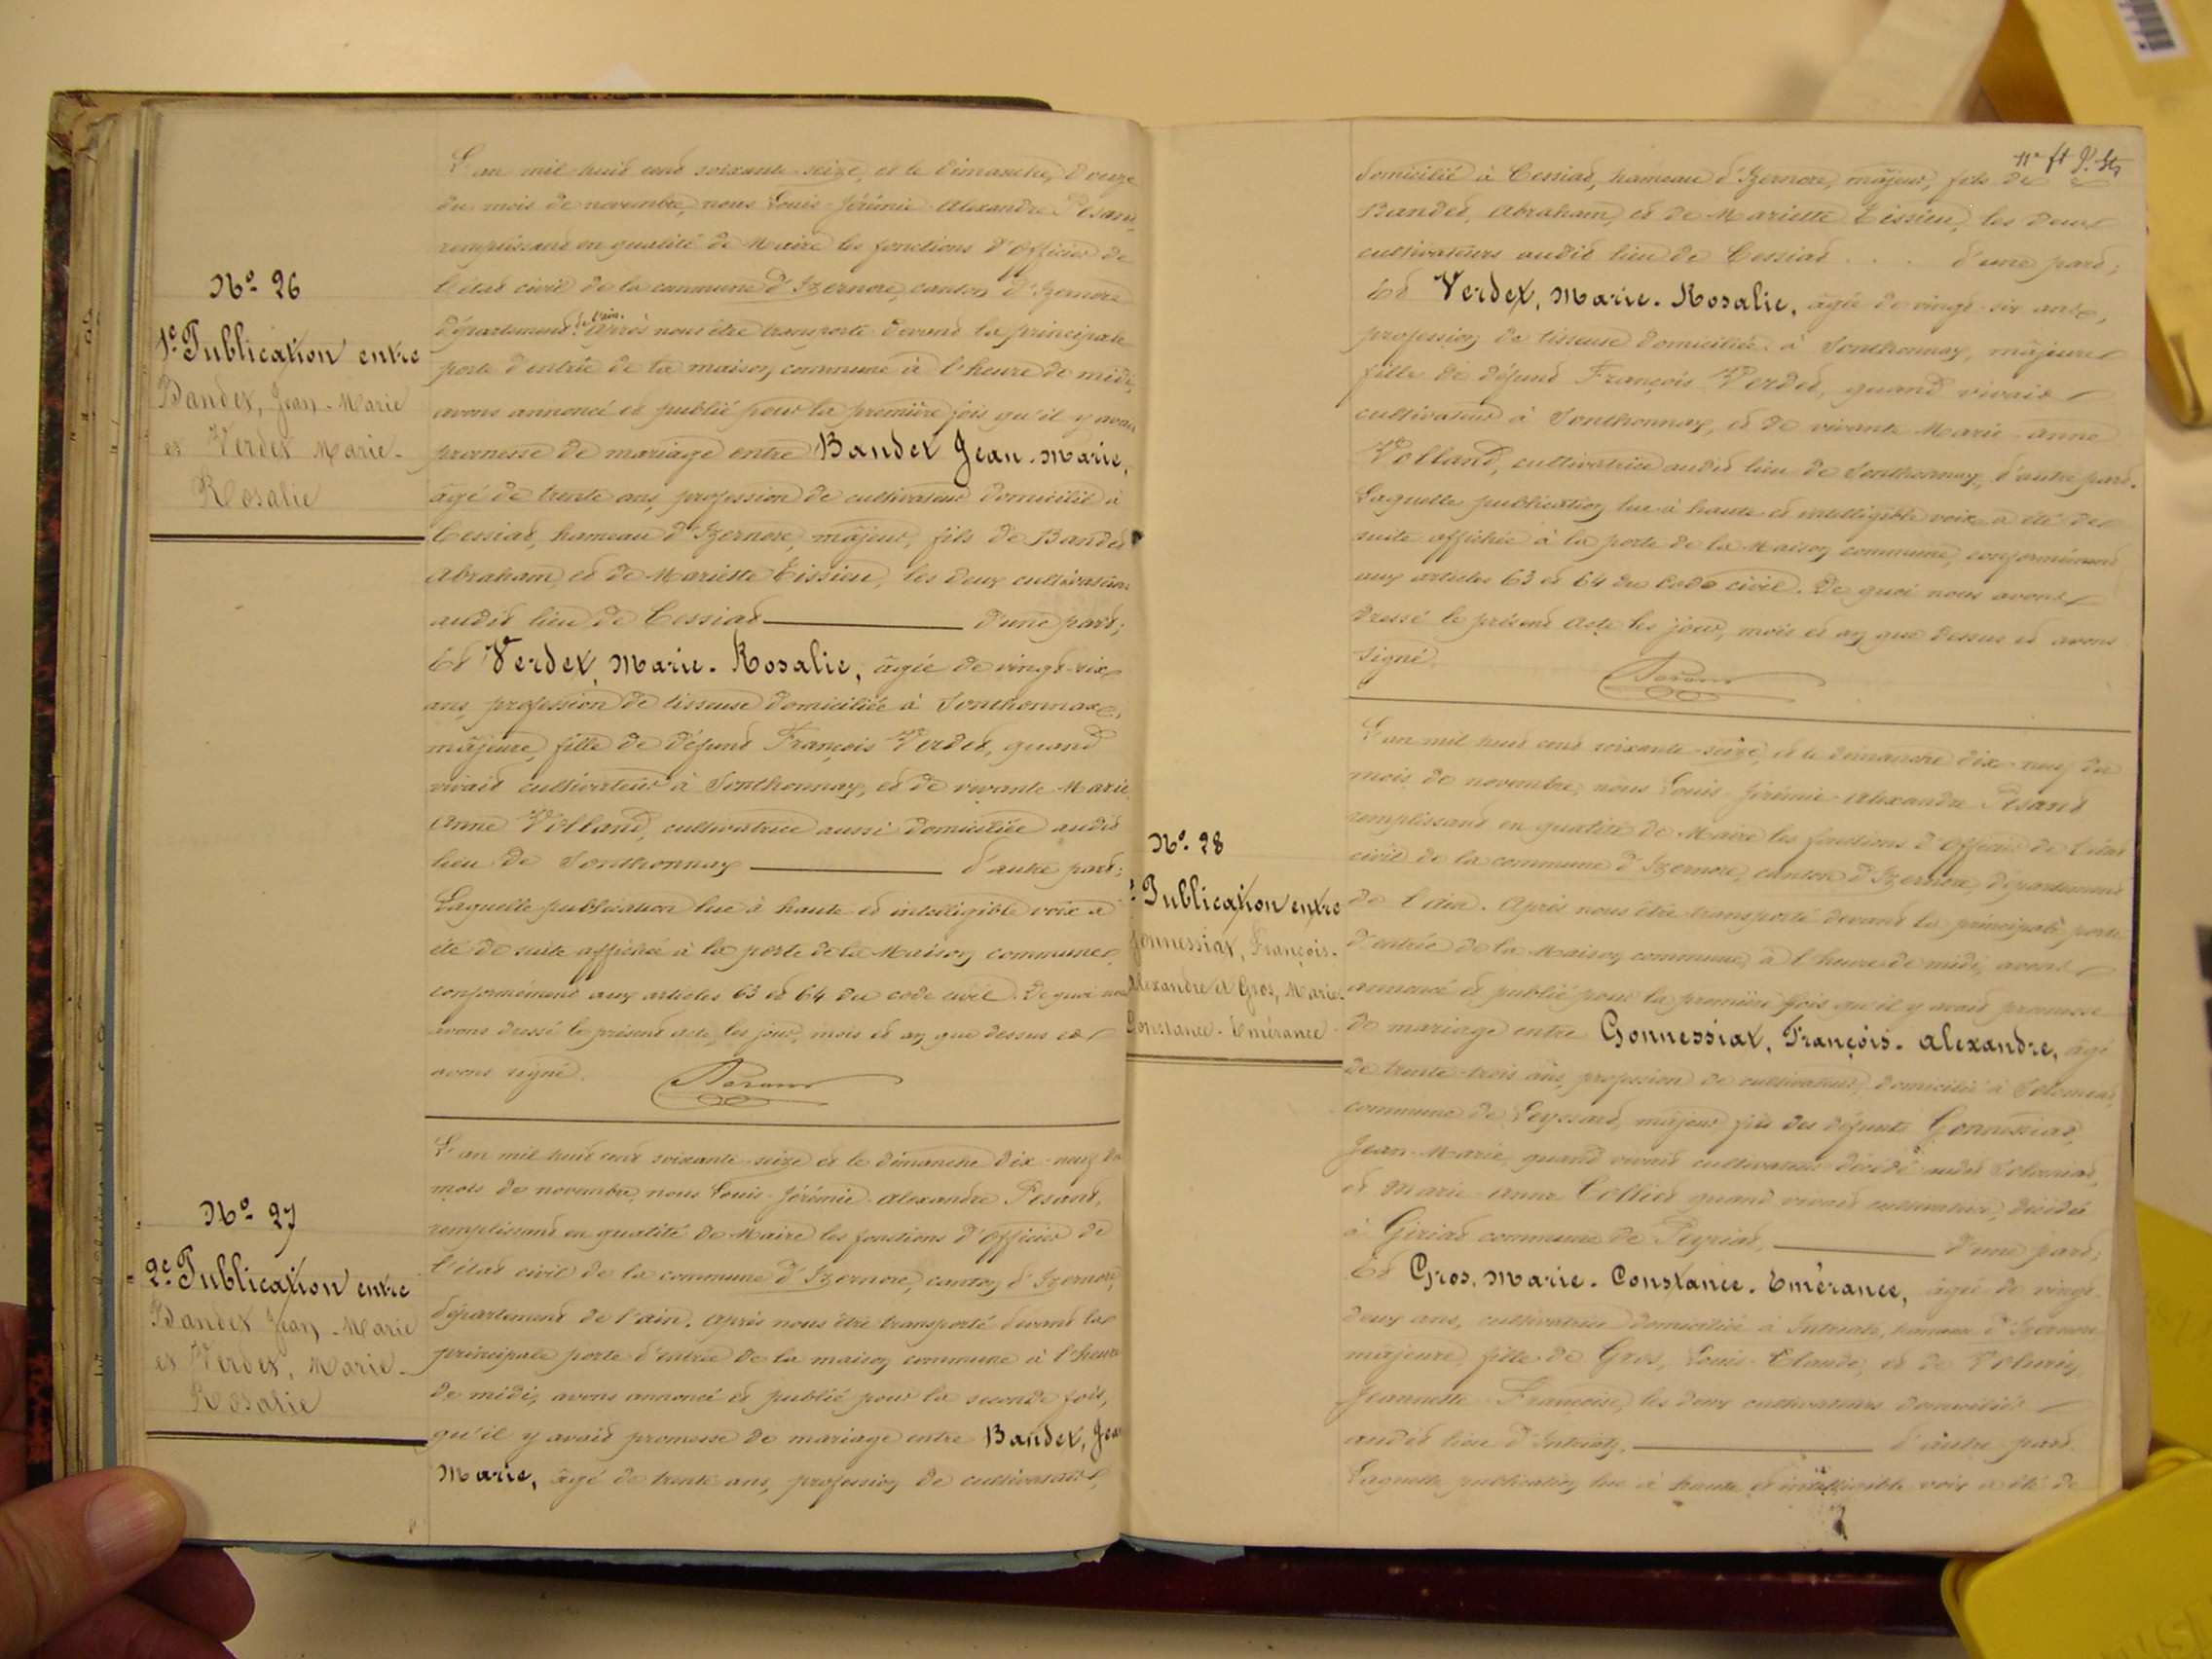 N.º 26
1e Publication entre
Bandet, Jean-Marie
et Verdet Marie-
Rosalie
L'an mil huit cent soixante-seize, et le dimanche, douze
du mois de novembre, nous Louis-Jérémie-Alexandre Pesant,
remplissant en qualité de Maire les fonctions d'Officier de
l'état civil de la commune d'Izernore, canton d'Izernore
département de l'ain. Après nous être transporté devant la principale
porte d'entrée de la maison commune à l'heure de midi,
avons annoncé et publié pour la première fois qu'il y avait
promesse de mariage entre Bandet Jean-Marie,
âgé de trente ans, profession de cultivateur domicilié à
Cessiat, hameau d'Izernore, majeur, fils de Bandet
Abraham, et de Mariette Tissieu, les deux cultivateurs
audit lieu de Cessiat d'une part;
Et Verdet, Marie-Rosalie, âgée de vingt-six
ans, profession de tisseuse domiciliée à Sonthonnax,
majeure, fille de défunt François Verdet, quand
vivait cultivateur à Sonthonnax, et de vivante Marie
Anne Volland, cultivatrice aussi domiciliée audit
lieu de Sonthonnax d'autre part;
Laquelle publication lue à haute et intelligible voix a
été de suite affichée à la porte de la Maison commune,
conformément aux articles 63 et 64 du code civil. De quoi nous
avons dressé le présent acte, les jour, mois et an que dessus et
avons signé. Pesant
N.º 27
2e Publication entre
Bandet Jean-Marie
et Verdet, Marie-
Rosalie
L'an mil huit cent soixante-seize et le dimanche dix-neuf du
mois de novembre, nous Louis-Jérémie-Alexandre Pesant,
remplissant en qualité de Maire les fonctions d'Officier de
l'état civil de la commune d'Izernore, canton d'Izernore,
département de l'ain. Après nous être transporté devant la
principale porte d'entrée de la maison commune à l'heure
de midi, avons annoncé et publié pour la seconde fois,
qu'il y avait promesse de mariage entre Bandet, Jean
Marie, âgé de trente ans, profession de cultivateur,
domicilié à Cessiat, hameau d'Izernore, majeur, fils de
Bandet, Abraham, et de Mariette Tissieu, les deux
cultivateurs audit lieu de Cessiat . . . d'une part;
Et Verdet, Marie-Rosalie, âgée de vingt-six ans,
profession de tisseuse domiciliée à Sonthonnax, majeure
fille de défunt François Verdet, quand vivait
cultivateur à Sonthonnax, et de vivante Marie-anne
Volland, cultivatrice audit lieu de Sonthonnax, d'autre part.
Laquelle publication lue à haute et intelligible voix a été de
suite affichée à la porte de la Maison commune, conformément
aux articles 63 et 64 du Code civil. De quoi nous avons
dressé le présent Acte les jour, mois et an que dessus et avons
signé. Pesant
N.º 28
Publication entre
Gonnessiat, François-
Alexandre et Gros, Marie-
Constance-Emérance
L'an mil huit cent soixante-seize, et le dimanche dix-neuf du
mois de novembre, nous Louis-Jérémie-Alexandre Pesant
remplissant en qualité de Maire les fonctions d'Officier de l'état
civil de la commune d'Izernore, canton d'Izernore, département
de l'ain. Après nous être transporté devant la principale porte
d'entrée de la Maison commune, à l'heure de midi, avons
annoncé et publié pour la première fois qu'il y avait promesse
de mariage entre Gonnessiat, François-Alexandre, âgé
de trente-trois ans, profession de cultivateur, domicilié à
commune de Leyssard, majeur fils des défunts Gonnessiat,
Jean-Marie, quand vivait cultivateur décédé audit
et Marie-Anne Collier quand vivait cultivatrice, décédée
à Giriat commune de Peyriat, d'une part;
Et Gros, Marie-Constance-Emérance, âgée de vingt-
deux ans, cultivatrice domiciliée à Intriatz, hameau d'Izernore
majeure, fille de Gros, Louis-Claude, et de
Jeannette-Françoise, les deux cultivateurs domiciliés
audit lieu d'Intriatz, d'autre part.
Laquelle publication lue à haute et intelligible voix a été de